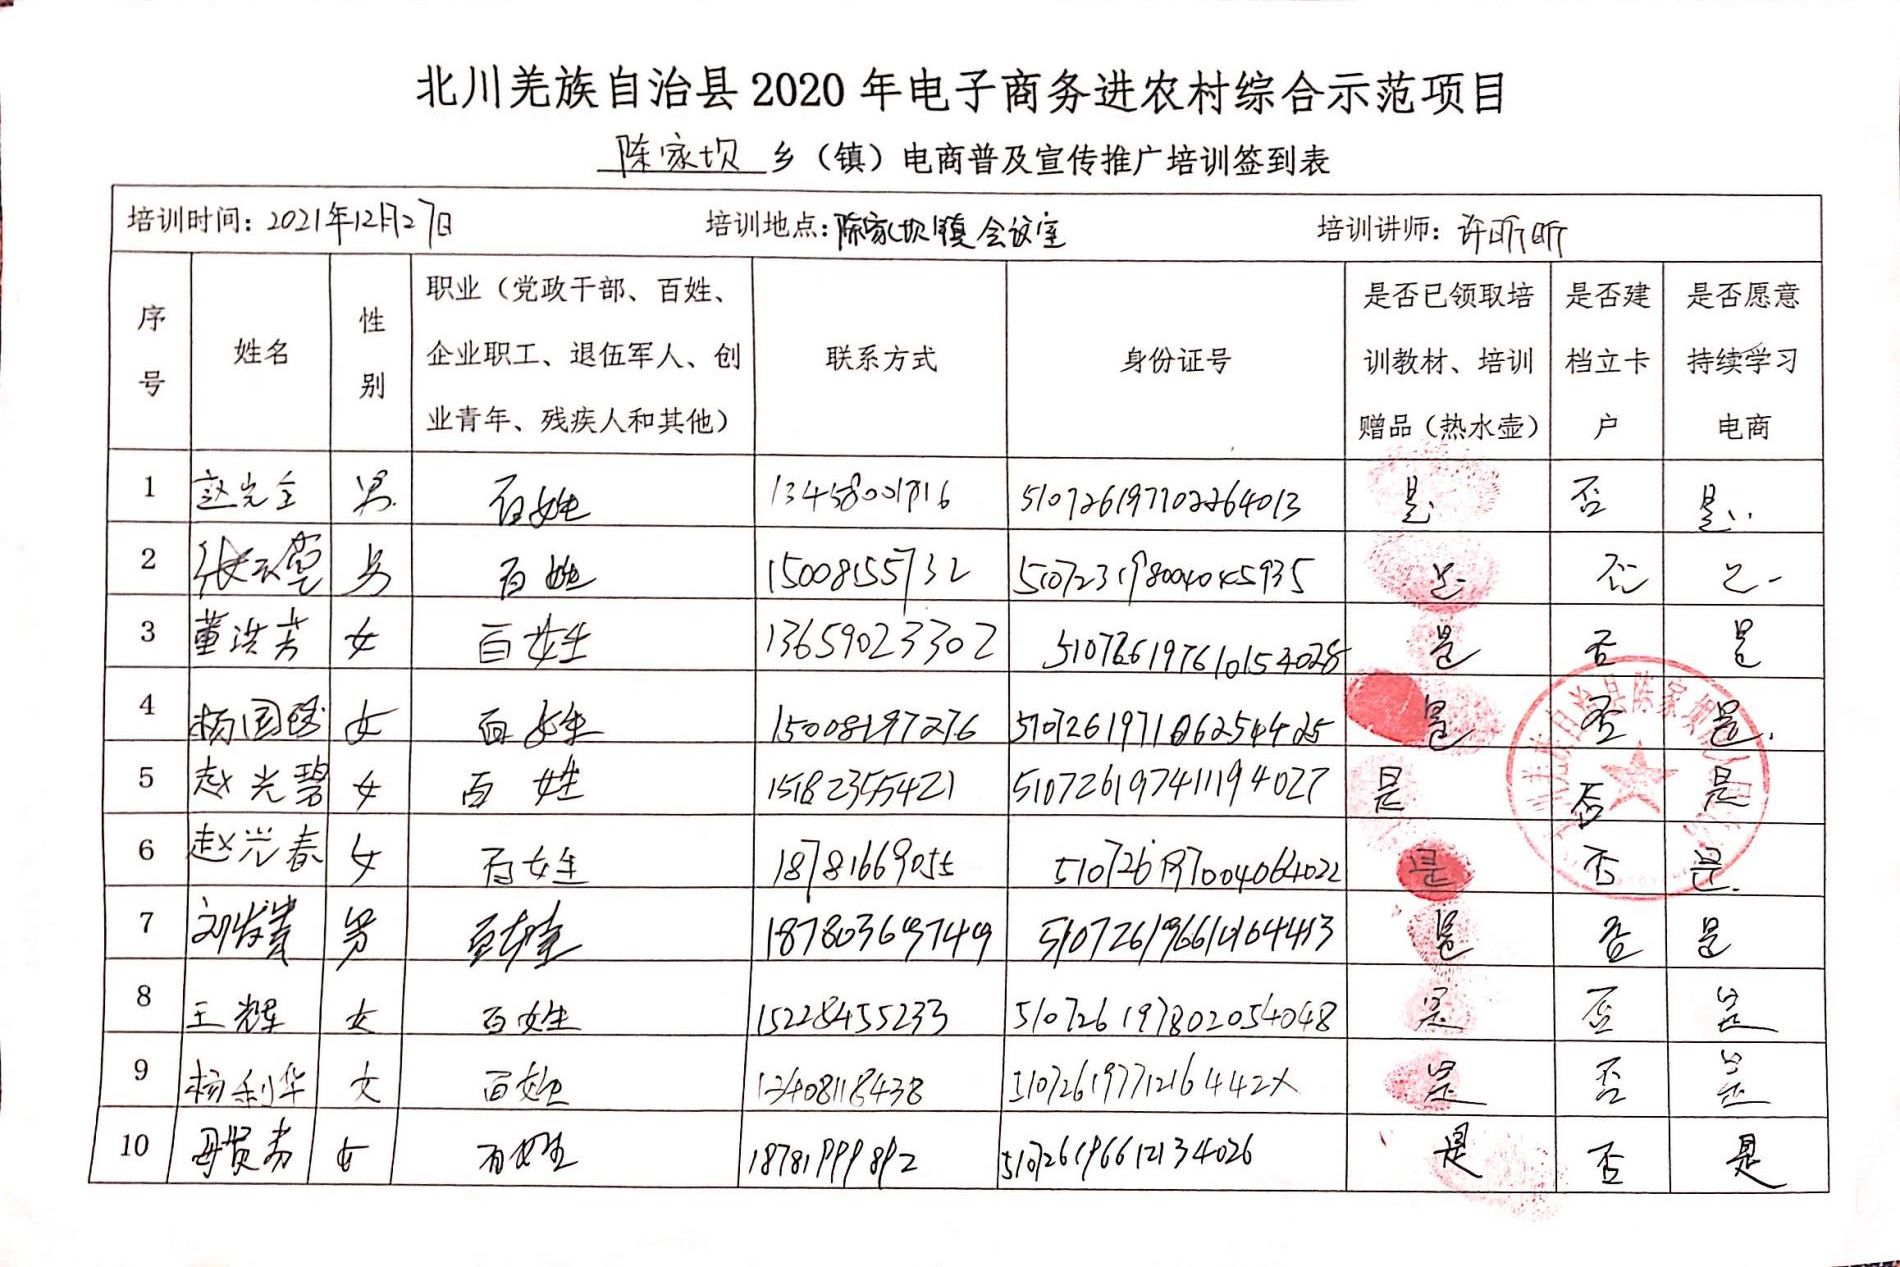 北川羌族自治县2020年电子商务进农村综合示范项目
陈家坝 乡（镇）电商普及宣传推广培训签到表
培训时间：2021年12月27日 培训地点：陈家坝镇会议室 培训讲师：许昕昕
序号 姓名 性别 职业（党政干部、百姓、企业职工、退伍军人、创业青年、残疾人和其他） 联系方式 身份证号 是否已领取培训教材、培训赠品（热水壶） 是否建档立卡户 是否愿意持续学习电商
1 男 百姓 是 否 是
2 男 百姓 15008155732 是 否 是
3 董洪芳 女 百姓 13659023302 是 否 是
4 女 百姓 15008197276 是 否 是
5 赵光碧 女 百姓 15182355421 510726197411194027 是 否 是
6 赵光春 女 百姓 18781669055 510726197004064022 是 否 是
7 男 百姓 是 否 是
8 王辉 女 百姓 15228455233 510726197802054048 是 否 是
9 杨利华 女 百姓 51072619771216442X 是 否 是
10 母贤芳 女 百姓 18781999892 510726196612134026 是 否 是